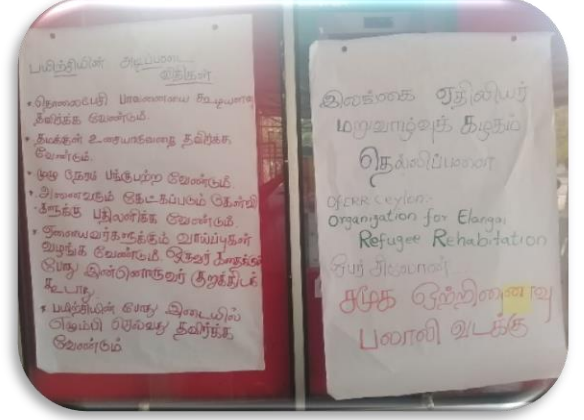 பயிற்சியின் அடிப்படை
விதிகள்
* தொலைபேசி பாவனையை கூடியளவு
தவிர்க்க வேண்டும்.
* தமக்குள் உரையாடுவதை தவிர்க்க
வேண்டும்.
* முழு நேரம் பங்குபற்ற வேண்டும்.
* அனைவரும் கேட்கப்படும் கேள்வி
-களுக்கு பதிலளிக்க வேண்டும்.
* ஏனையவர்களுக்கும் வாய்ப்புகள்
வழங்க வேண்டும் ஒருவர் கதைக்கும்
போது இன்னொருவர் குறுக்கிடக்
கூடாது
* பயிற்சியின் போது இடையில்
எழும்பி செல்வது தவிர்க்க
வேண்டும்
இலங்கை ஏதிலியர்
மறுவாழ்வுக் கழகம்
தெல்லிப்பளை
OfERR Ceylon:-
Organization for Elangai
Refugee Rehabitation
சமூக ஒற்றிணைவு
பலாலி வடக்கு